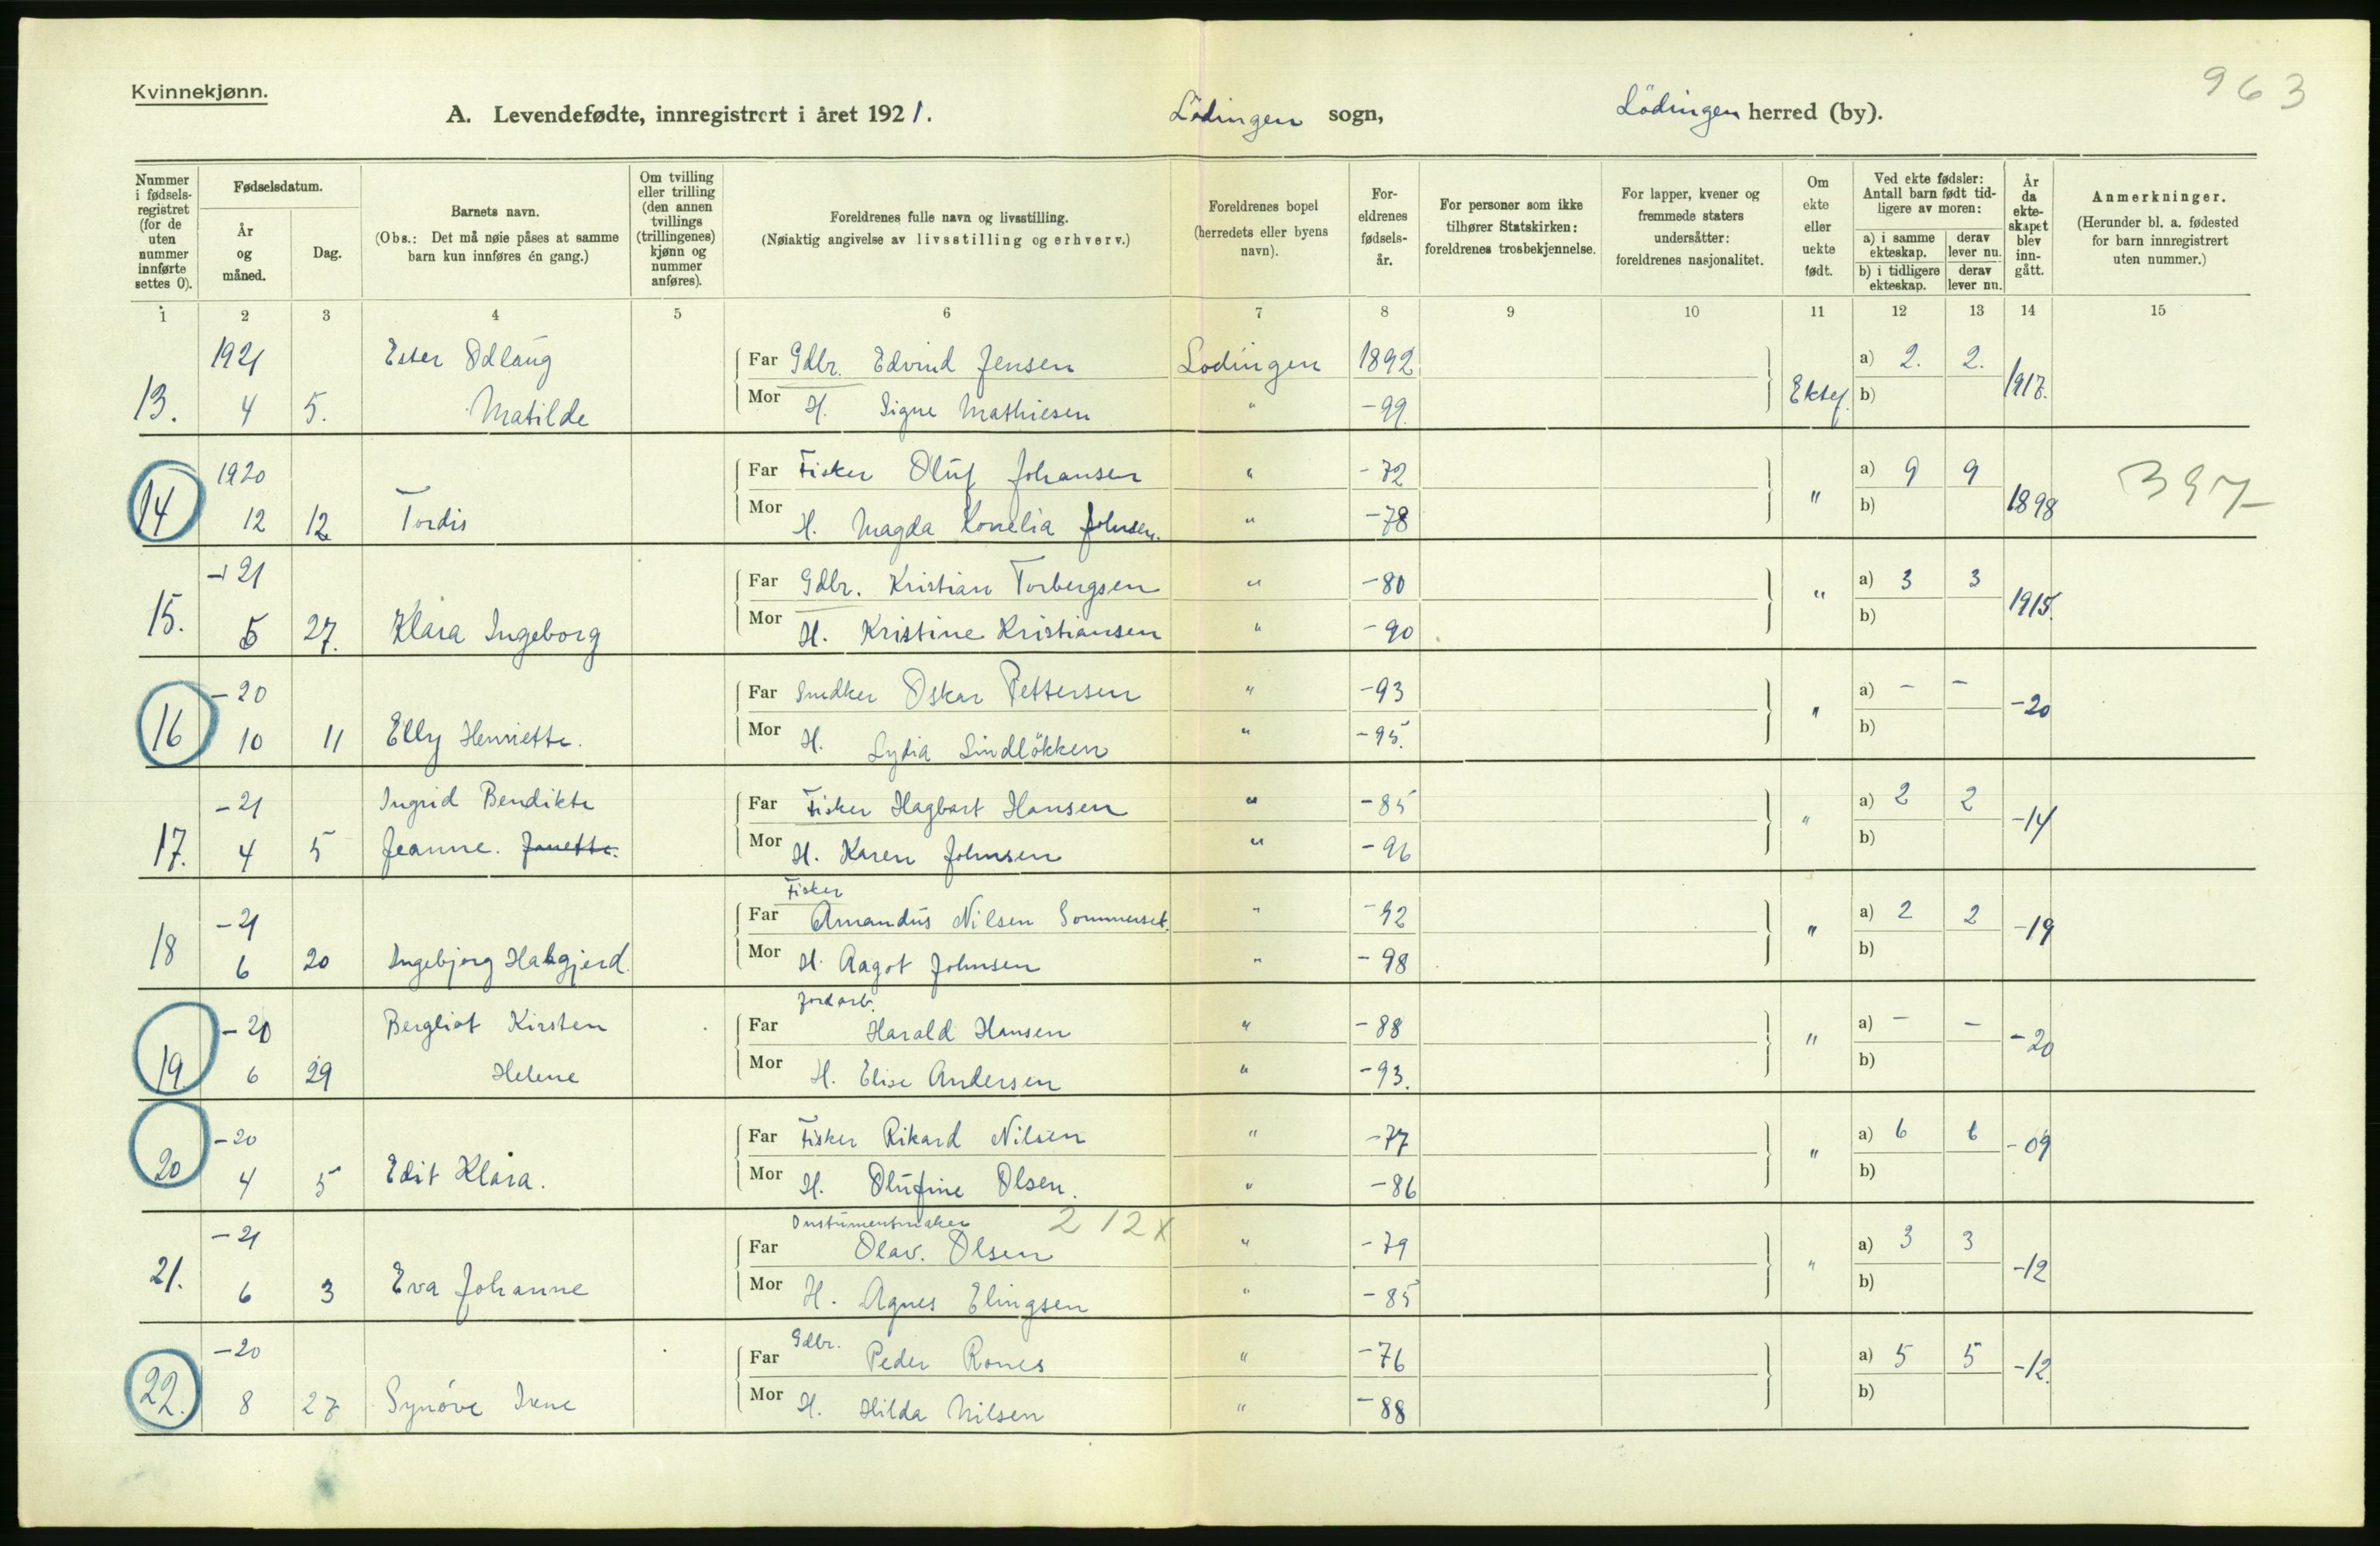 Kvinnekjønn.
963
A. Levendefødte, innregistrert i året 1921. Lödingen sogn, Lödingen herred (by).
Nummer i fødselsregistret (for de uten nummer innførte settes 0).
Fødselsdatum.
År og måned.
Dag.
Barnets navn.
(Obs.: Det må nøie påses at samme barn kun innføres én gang.)
Om tvilling eller trilling (den annen tvillings (trillingenes) kjønn og nummer anføres).
Foreldrenes fulle navn og livsstilling.
(Nøiaktig angivelse av livsstilling og erhverv.)
Foreldrenes bopel (herredets eller byens navn).
Foreldrenes fødselsår.
For personer som ikke tilhører Statskirken: foreldrenes trosbekjennelse.
For lapper, kvener og fremmede staters undersåtter: foreldrenes nasjonalitet.
Om ekte eller uekte født.
Ved ekte fødsler: Antall barn født tidligere av moren:
a) i samme ekteskap. derav lever nu.
b) i tidligere ekteskap. derav lever nu.
År da ekteskapet blev inngått.
Anmerkninger.
(Herunder bl. a. fødested for barn innregistrert uten nummer.)
1 2 3 4 5 6 7 8 9 10 11 12 13 14 15
1921 Ester Odlaug Far Gdbr. Edvind Jensen Lodingen 1892 a) 2. 2.
13. 4 5. Matilde Mor H. Signe Mathiesen " -99. Ektef. b) 1917.
1920 Far Fisker Oluf Johansen " -72 a) 9 9
14 12 12 Tordis Mor H. Magda Konelia Johnsen. " -78 " b) 1898 397
-21 Far Gdbr. Kristian Torbergsen " -80 a) 3 3
15. 5 27. Klara Ingeborg Mor H. Kristine Kristiansen " -90 " b) 1915.
-20 Far Snedker Oskar Pettersen " -93 a) - -
16 10 11 Elly Henriette. Mor H. Lydia Lindlökken " -95. " b) -20
-21 Ingrid Bendikte Far Fisker Hagbart Hansen " -85 a) 2 2
17. 4 5 Jeanne. Janette. Mor H. Karen Johnsen " -96 " b) -14
Fisker
-21 Far Amandus Nilsen Sommerset. " -92 a) 2 2
18 6 20 Ingebjørg Hallgjerd. Mor H. Aagot Johnsen " -98 " b) -19
Jordarb.
-20 Bergliot Kirsten Far Harald Hansen " -88 a) - -
19 6 29 Helene Mor H. Elise Andersen " -93. " b) -20
-20 Far Fisker Rikard Nilsen " -77 a) 6 6
20 4 5 Edit Klara. Mor H. Olufine Olsen. " -86 " b) -09
Instumentmaker 212x
-21 Far Olav. Olsen " -79 a) 3 3
21. 6 3 Eva Johanne Mor H. Agnes Elingsen " -85 " b) -12
Gdbr.
-20 Far Peder Rones " -76 a) 5 5
22. 8 27 Synöve Irene Mor H. Hilda Nilsen " -88 b) -12.